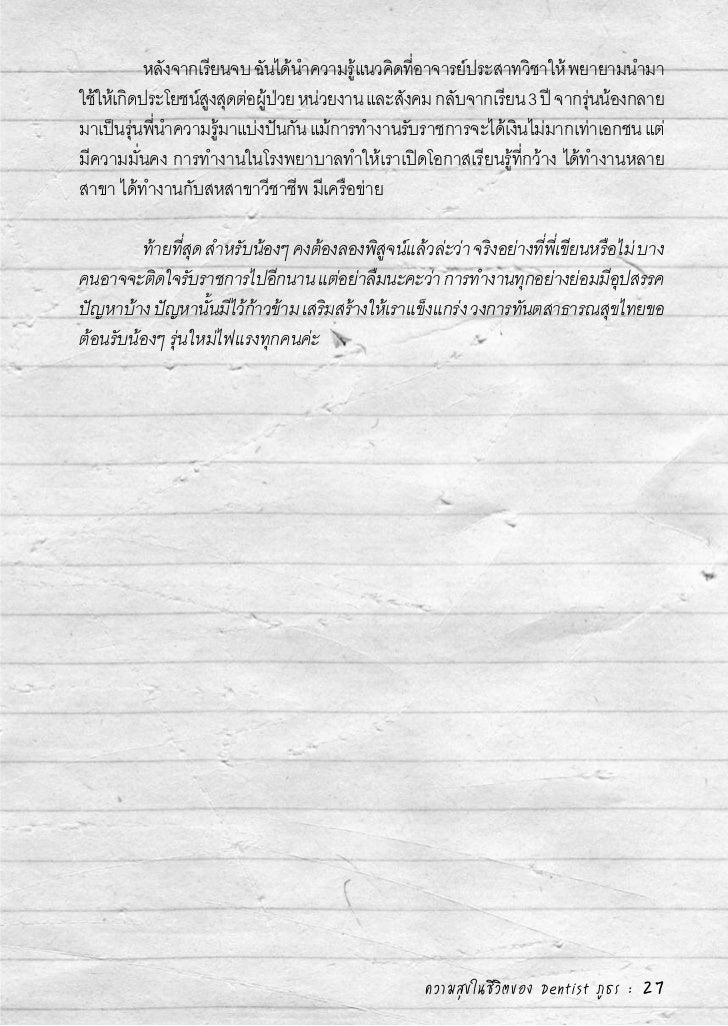 หลังจากเรียนจบ ฉันได้นำความรู้แนวคิดที่อาจารย์ประสาทวิชาให้ พยายามนำมา
ใช้ให้เกิดประโยชน์สูงสุดต่อผู้ป่วย หน่วยงาน และสังคม กลับจากเรียน 3 ปี จากรุ่นน้องกลาย
มาเป็นรุ่นพี่นำความรู้มาแบ่งปันกัน แม้การทำงานรับราชการจะได้เงินไม่มากเท่าเอกชน แต่
มีความมั่นคง การทำงานในโรงพยาบาลทำให้เราเปิดโอกาสเรียนรู้ที่กว้าง ได้ทำงานหลาย
สาขา ได้ทำงานกับสหสาขาวิชาชีพ มีเครือข่าย
ท้ายที่สุด สำหรับน้องๆ คงต้องลองพิสูจน์แล้วล่ะว่า จริงอย่างที่พี่เขียนหรือไม่ บาง
คนอาจจะติดใจรับราชการไปอีกนาน แต่อย่าลืมนะคะว่า การทำงานทุกอย่างย่อมมีอุปสรรค
ปัญหาบ้าง ปัญหานั้นมีไว้ก้าวข้าม เสริมสร้างให้เราแข็งแกร่ง วงการทันตสาธารณสุขไทยขอ
ต้อนรับน้องๆ รุ่นใหม่ไฟแรงทุกคนค่ะ
ความสุขในชีวิตของ Dentist ภูธร : 27